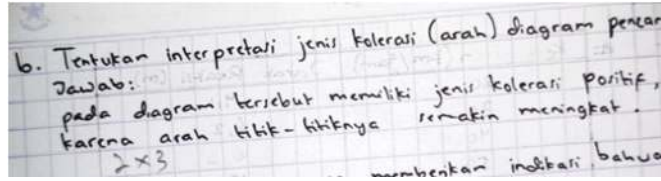 b. Tentukan interpretasi jenis kolerasi (arah) diagram pencar
Jawab:
pada diagram tersebut memiliki jenis kolerasi positif,
karena arah titik-titiknya semakin meningkat.
2×3
memberikan indikasi bahwa